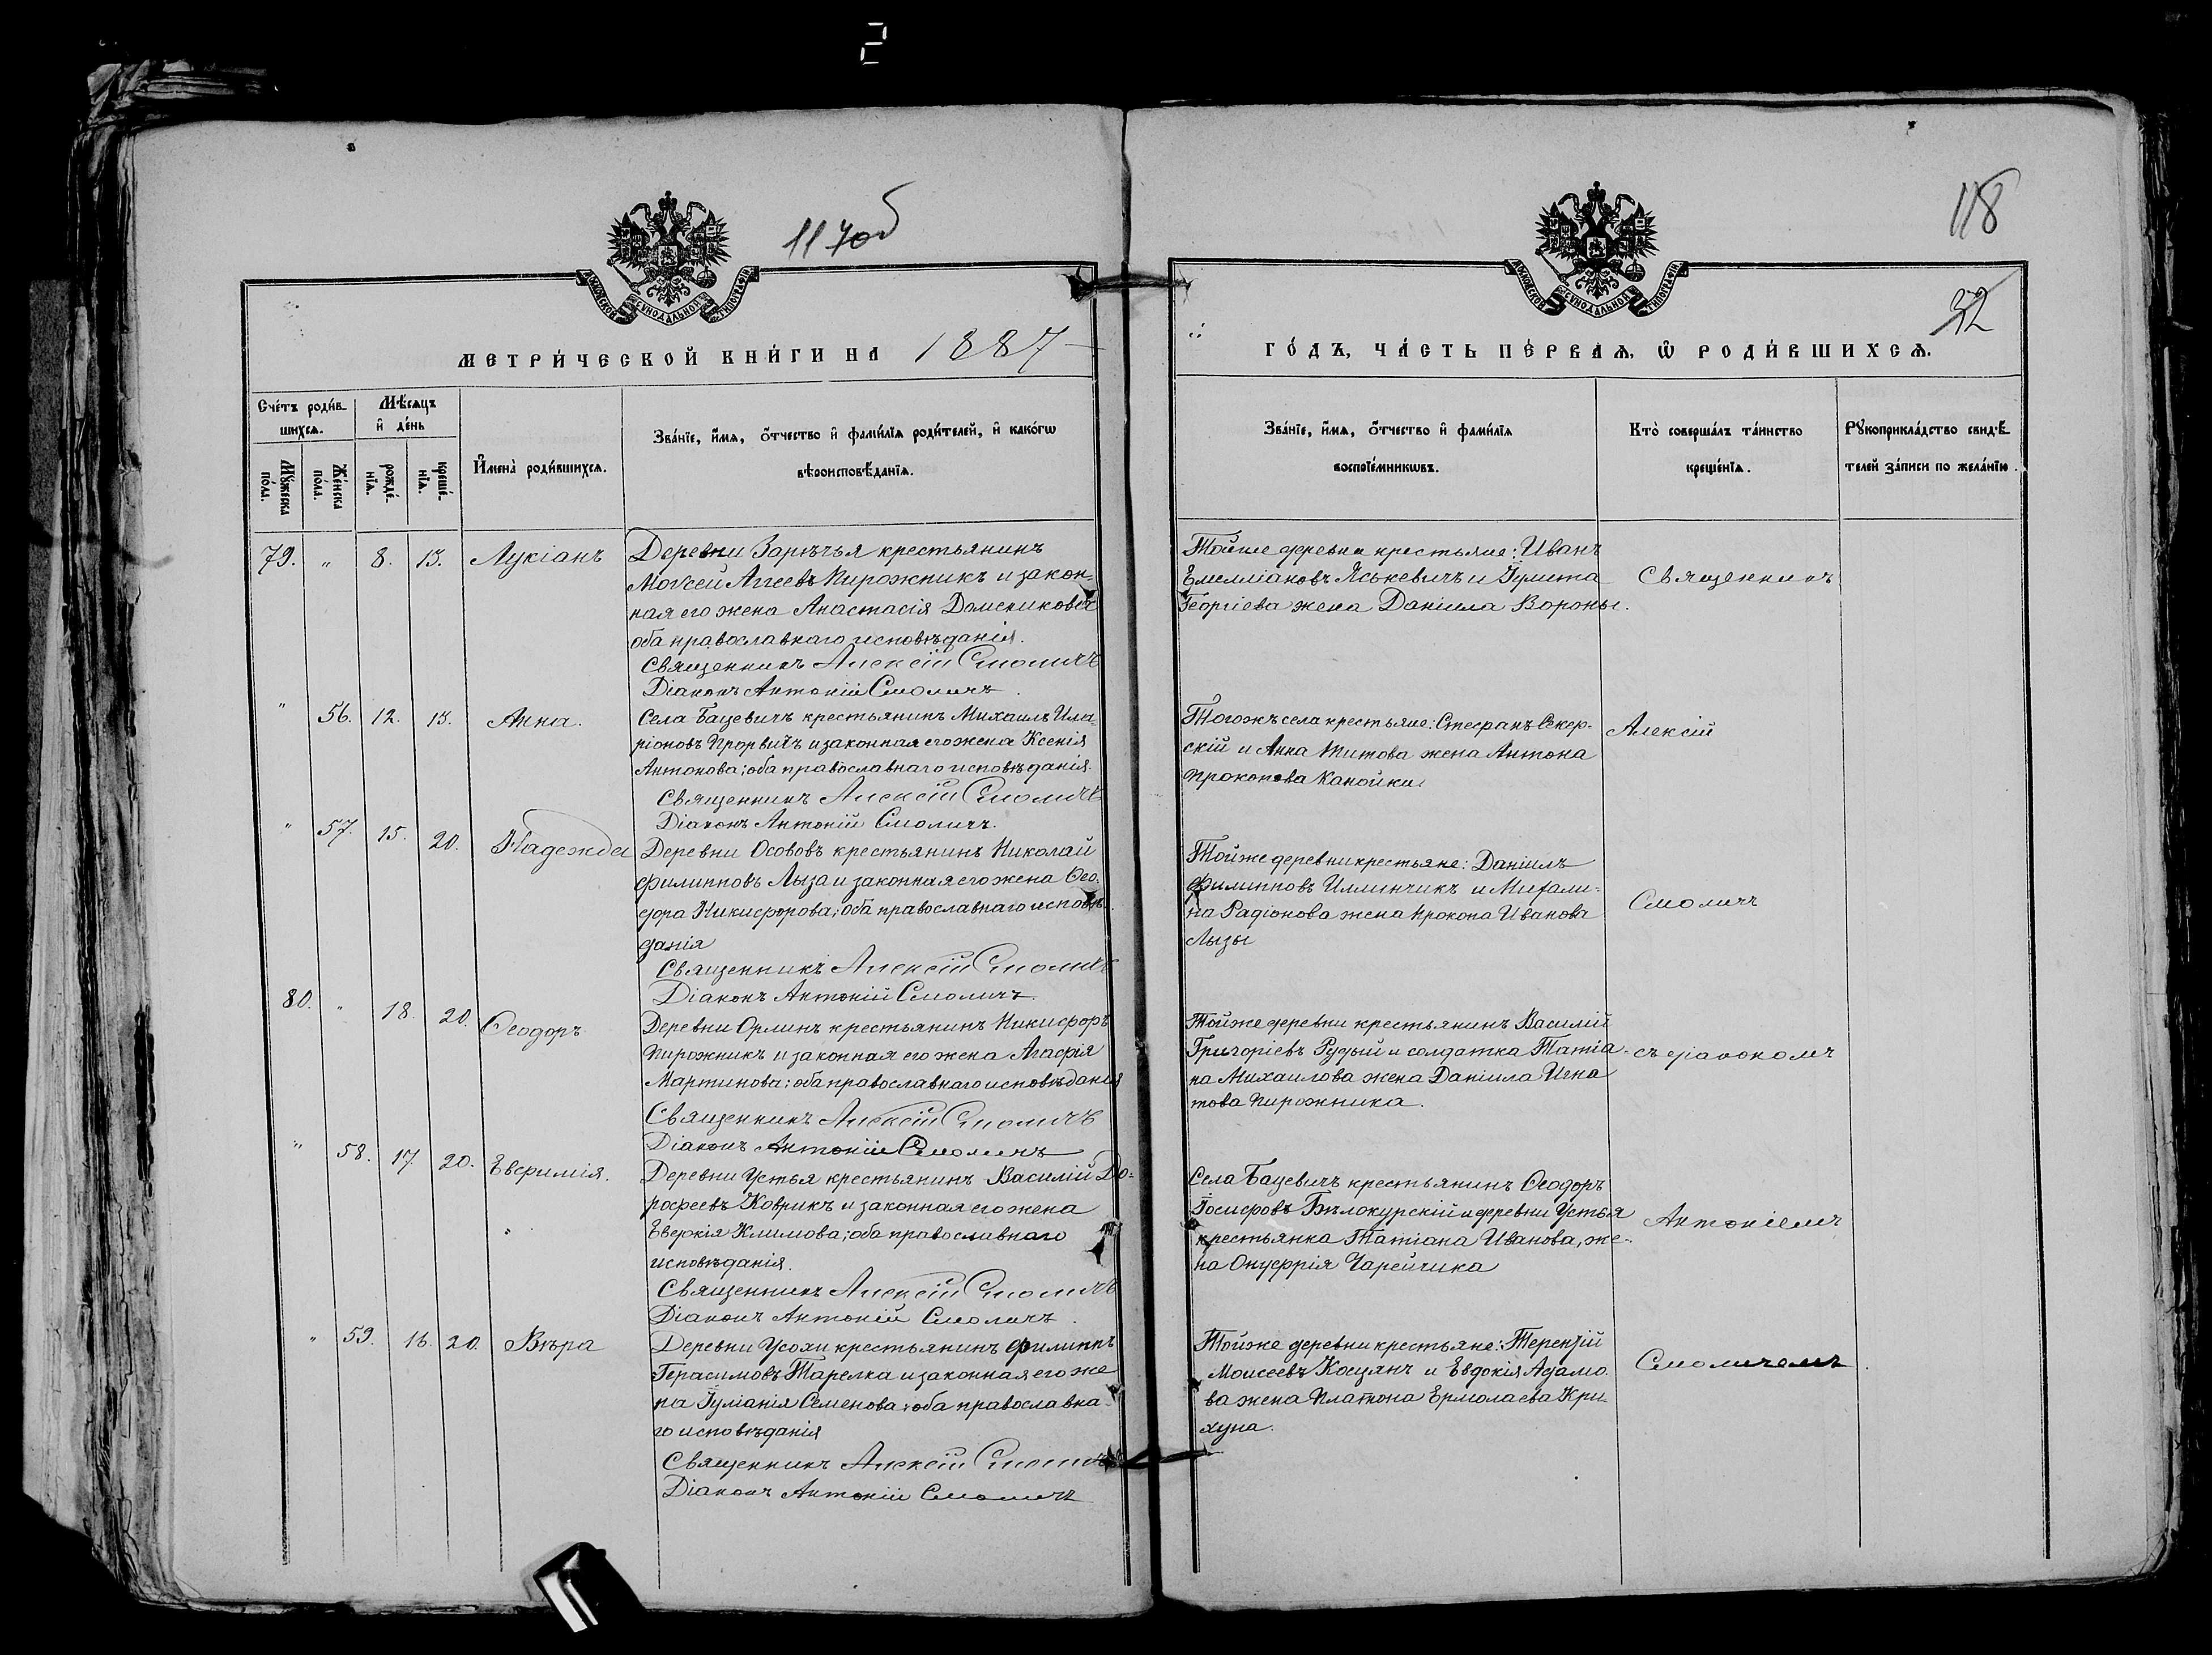 2
117об
118
32
МОСКОВСКОЙ СУНОДАЛЬНОЙ ТИПОГРАФІИ
МОСКОВСКОЙ СУНОДАЛЬНОЙ ТИПОГРАФІИ
МЕТРИ́ЧЕСКОЙ КНИ́ГИ НА 1887
ГО́ДЪ, ЧА́СТЬ ПЕ́РВАѦ, Ѡ РОДИ́ВШИХСѦ.
Сче́тъ роди́в-
шихсѧ.
Мѣ́сѧцъ
и де́нь
Мꙋ́жеска
по́ла.
Же́нска
по́ла.
рожде́-
нїѧ.
креще́-
нїѧ.
И҆мена̀ роди́вшихсѧ.
Зва́нїе, и҆́мѧ, о҆́тчество и҆ фами́лїѧ роди́телей, и҆ како́гѡ
вѣроисповѣ́данїѧ.
Зва́нїе, и҆́мѧ, о҆́тчество и҆ фами́лїѧ
воспрїе́мникѡвъ.
Кто̀ соверша́лъ та́инство
креще́нїѧ.
Рꙋкоприкла́дство свидѣ́-
телей за́писи по жела́нїю.
79. " 8. 13. Лукіанъ
Деревни Зарѣчья крестьянинъ
Моѵсей Агѣевъ Пирожникъ и закон-
ная его жена Анастасія Доменикова
оба православнаго исповѣданія.
Священникъ Алексій Смоличъ
Діаконъ Антоній Смоличъ.
Тойже деревни крестьяне: Иванъ
Емелліановъ Яськевичъ и Іулита
Георгіева жена Даніила Вороны.
Священникъ
" 56. 12. 13. Анна.
Села Бацевичъ крестьянинъ Михаилъ Ила-
ріоновъ Прорвичъ и законная его жена Ксенія
Антонова; оба православнаго исповѣданія.
Священникъ Алексій Смоличъ
Діаконъ Антоній Смоличъ.
Тогожъ села крестьяне: Стефанъ Секер-
скій и Анна Титова жена Антона
Прокопова Канойки.
Алексій
" 57. 15. 20. Надежда
Деревни Ососовъ крестьянинъ Николай
Филипповъ Лыза и законная его жена Ѳео-
дора Никифорова; оба православнаго исповѣ-
данія
Священникъ Алексій Смоличъ
Діаконъ Антоній Смоличъ.
Тойже деревни крестьяне: Даніилъ
Филипповъ Илминчикъ и Михали-
на Радіонова жена Прокопа Иванова
Лызы
Смоличъ
80. " 18. 20. Ѳеодоръ
Деревни Орлинъ крестьянинъ Никифоръ
Пирожникъ и законная его жена Агафія
Мартинова; оба православнаго исповѣданія
Священникъ Алексій Смоличъ
Діаконъ Антоній Смоличъ
Тойже деревни крестьянинъ Василій
Григоріевъ Рудый и солдатка Татіа-
на Михаилова жена Даніила Игна
това Пирожника.
съ діакономъ
" 58. 17. 20. Евфимія.
Деревни Устья крестьянинъ Василій До-
рофеевъ Коврикъ и законная его жена
Евдокія Климова; оба православнаго
исповѣданія.
Священникъ Алексій Смоличъ
Діаконъ Антоній Смоличъ.
Села Бацевичъ крестьянинъ Ѳеодоръ
Іосифовъ Бѣлокурскій и деревни Устья
крестьянка Татіана Иванова, же-
на Онуфрія Чарейчика
Антоніемъ
" 59. 16. 20. Вѣра
Деревни Усохи крестьянинъ Филиппъ
Герасимовъ Тарелка и законная его же
на Іуліанія Семенова; оба православна-
го исповѣданія
Священникъ Алексій Смоличъ
Діаконъ Антоній Смоличъ
Тойже деревни крестьяне: Терентій
Моисеевъ Косцянъ и Евдокія Адамо-
ва жена Платона Ермолаева Кри-
хуна.
Смоличемъ.